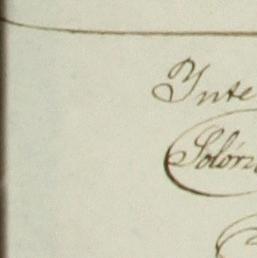 Ynte
Solórz